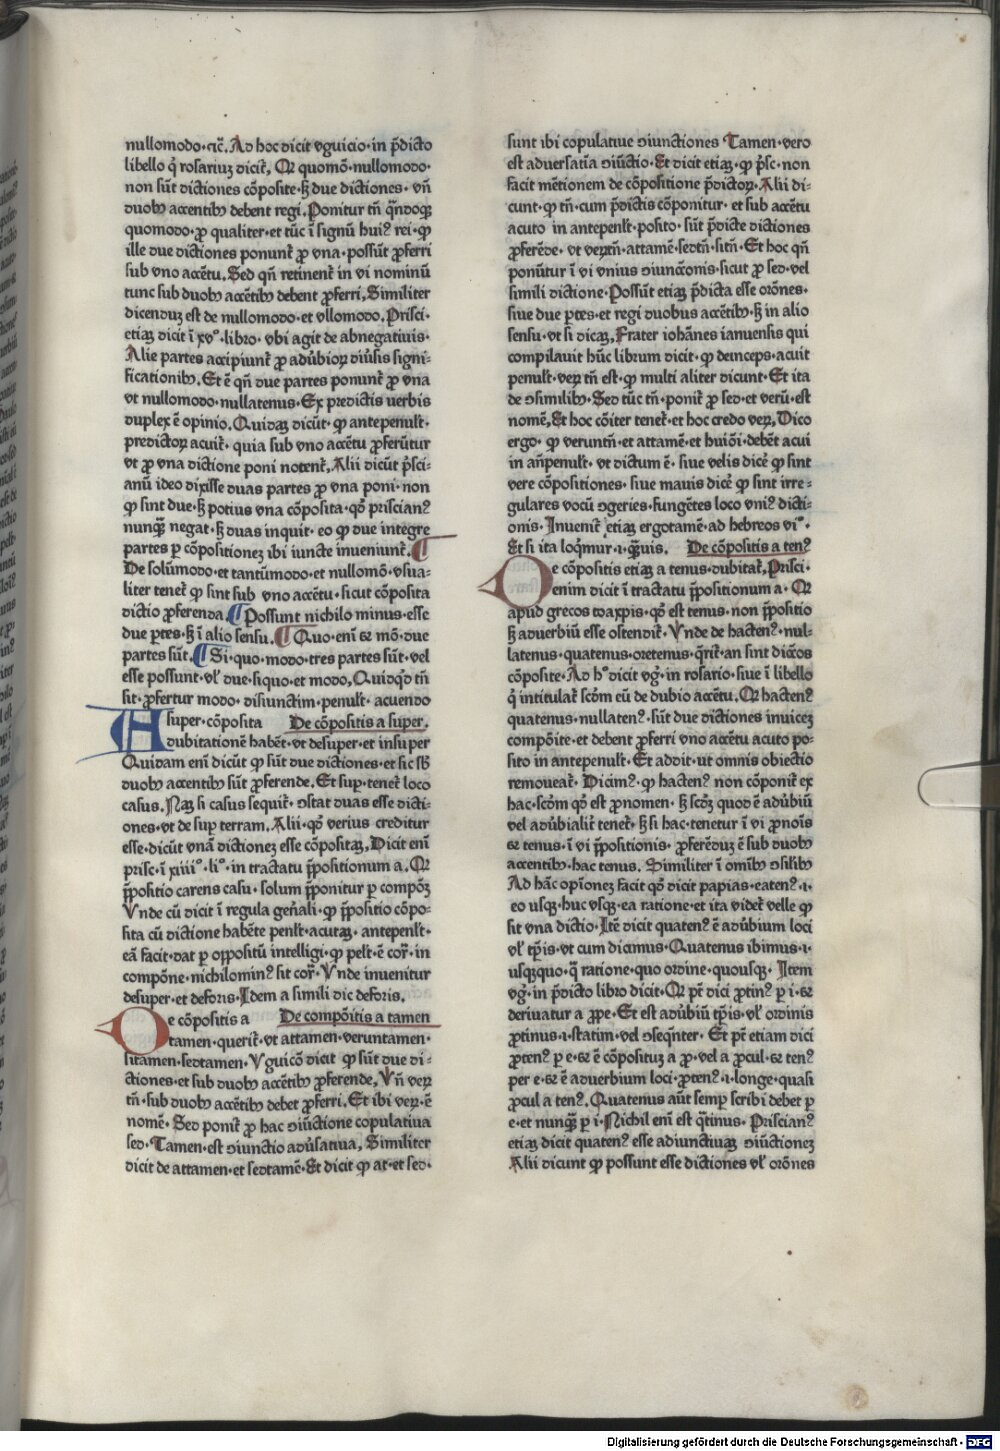 nullomodo·⁊cͣ. Ad hoc dicit vguicio·in p̄dicto
libello q̇ rosariuꝫ dicit᷑, Qꝛ quomō·nullomodo·
non sūt dictiones cōposite·ꝫ due dictiones· vn̄
duobꝰ accentibꝰ debent regi, Ponitur tn̄ qn̄doqꝫ
quomodo·ꝓ qualiter·et tūc ī signū huiꝰ rei·ꝙ
ille due dictiones ponunt᷑ ꝓ vna·possūt ꝓferri
sub vno accētu, Sed qn̄ retinent᷑ in vi nominū
tunc sub duobꝰ accētibꝰ debent ꝓferri, Similiter
dicenduꝫ est de nullomodo·et vllomodo, Prisci·
etiaꝫ dicit ī xvͦ·libro·vbi agit de abnegatiuis·
Alie partes accipiunt᷑ ꝓ adūbioꝝ diūsis signi⸗
ficationibꝰ, Et ē qn̄ due partes ponunt᷑ ꝓ vna
vt nullomodo·nullatenus·Ex predictis verbis
duplex ē opinio, Quidaꝫ dicūt·ꝙ antepenult·
predictoꝝ acuit᷑·quia sub vno accētu ꝓferūtur
vt ꝓ vna dictione poni notent᷑, Alii dicūt p̄sci⸗
anū ideo dixisse duas partes ꝓ vna poni·non
ꝙ sint due·ꝫ potius vna cōposita·qō priscianꝰ
nunqꝫ̄ negat·ꝫ duas inquit·eo ꝙ due integre
partes ꝑ cōpositionez ibi iuncte inueniunt᷑. ¶
De solūmodo·et tantūmodo·et nullomō·vsua⸗
liter tenet᷑ ꝙ sint sub vno accētu·sicut cōposita
dictio ꝓferenda. ¶ Possunt nichilo minus·esse
due ꝑtes·ꝫ ī alio sensu. ¶ Quo·enī ⁊ mō·due
partes sūt. ¶ Si·quo·modo·tres partes sūt·vel
esse possunt·vl̓ due·siquo·et modo, Quidqͥd tn̄
sit·ꝓfertur modo·disiunctim·penult·acuendo
A super·cōposita De cōpositis a super.
dubitationē habēt·vt desuper·et insuper
Quidam enī dicūt ꝙ sūt due dictiones·et sic sb̄
duobꝰ accentibꝰ sūt ꝓferende, Et suꝑ·tenet᷑ loco
casus, Naꝫ si casus sequit᷑·ↄstat duas esse dicti⸗
ones·vt de suꝑ terram, Alii·qō verius creditur
esse·dicūt vnā dictionez esse cōpositaꝫ, Dicit enī
prisc·ī xiiiiͦ·liͦ·in tractatu p̄positionum a, Qꝛ
p̄positio carens casu·solum p̄ponitur ꝑ compōꝫ
Vnde cū dicit ī regula gen̄ali·ꝙ p̄positio cōpo⸗
sita cū dictione habēte penl̓t·acutaꝫ·antepenl̓t·
eā facit·dat ꝑ oppositū intelligi·ꝙ pel̓t·ē cor̓·in
compōne·nichilominꝰ sit cor̓·Vnde inuenitur
desuper·et deforis·Idem a simili dic deforis.
De cōpositis a De compōitis a tamen
tamen·querit᷑·vt attamen·veruntamen·
sitamen·sedtamen·Vguicō dicit ꝙ sūt due di⸗
ctiones·et sub duobꝰ accētibꝰ ꝓferende, Vn̄ veꝝ
tn̄·sub duobꝰ accētibꝰ debet ꝓferri, Et ibi veꝝ·ē
nomē·Sed ponit᷑ ꝓ hac ↄiūctione copulatiua
sed·Tamen·est ↄiunctio adūsatiua, Similiter
dicit de attamen·et sedtamē·Et dicit ꝙ at·et sed·
sunt ibi copulatiue ↄiunctiones Tamen·vero
est aduersatīa ↄiūctio·Et dicit etiaꝫ·ꝙ p̄sc·non
facit mētionem de cōpositione p̄dictoꝝ, Alii di⸗
cunt·ꝙ tn̄·cum p̄dictis cōponitur·et sub accētu
acuto in antepenlt·posito·sūt p̄dicte dictiones
ꝓferēde·vt veꝝtn̄·attamē·sedtn̄·sitn̄·Et hoc qn̄
ponūtur ī vi vnius ↄiunctionis·sicut ꝓ sed·vel
simili dictione·Possūt etiaꝫ p̄dicta esse orōnes·
siue due ꝑtes·et regi duobus accētibꝰ·ꝫ in alio
sensu·vt si dicaꝫ, Frater iohānes ianuensis qui
compilauit hūc librum dicit·ꝙ deinceps·acuit
penult·veꝝ tn̄ est·ꝙ multi aliter dicunt·Et ita
de ↄsimilibꝰ·Sed tūc tn̄·ponit᷑ ꝓ sed·et verū·est
nomē, Et hoc cōiter tenet᷑·et hoc credo veꝝ, Dico
ergo·ꝙ veruntn̄·et attamē·et huiōi·debēt acui
in an̄penult·vt dictum ē·siue velis dicē ꝙ sint
vere cōpositiones·siue mauis dicē ꝙ sint irre⸗
gulares vocū ↄgeries·fungētes loco vniꝰ dicti⸗
onis·Inuenit᷑ etiaꝫ ergotamē·ad hebreos viͦ·
Et si ita loqͥmur·i·qꝫ̄uis. De cōpositis a tenꝰ
De cōpositis etiaꝫ a tenus·dubitat᷑, Prisci·
enim dicit ī tractatu p̄positionum a·Qꝛ
apud grecos toaxpis·qō est tenus·non p̄positio
ꝫ aduerbiū esse ostendit᷑·Vnde de hactenꝰ·nul⸗
latenus·quatenus·oretenus·q̄rit᷑·an sint dictiōes
cōposite·Ad hͦ dicit vg̓·in rosario·siue ī libello
q̇ intitulat᷑ scd̄m eū de dubio accētu, Qꝛ hactenꝰ
quatenus·nullatenꝰ·sūt due dictiones inuiceꝫ
compōite·et debent ꝓferri vno accētu acuto po⸗
sito in antepenult·Et addit·ut omnis obiectio
remoueat᷑·Dicimꝰ·ꝙ hactenꝰ non cōponit᷑ ex
hac·scd̄m qō est ꝓnomen·ꝫ scd̄ꝫ quod ē adūbiū
vel adūbialit᷑ tenet᷑·ꝫ si hac·tenetur ī vi ꝓnoīs
⁊ tenus·ī vi p̄positionis·ꝓferēduꝫ ē sub duobꝰ
accentibꝰ·hac tenus, Similiter ī omībꝰ ↄsilibꝰ
Ad hāc opīonez facit qō dicit papias·eatenꝰ·i·
eo usqꝫ·huc vsqꝫ·ea ratione·et ita videt᷑ velle ꝙ
sit vna dictio·Itē dicit quatenꝰ ē adūbium loci
vl̓ tp̄is·vt cum dicimus·Quatenus ibimus·i·
usqꝫquo·q̄ ratione·quo ordine·quousqꝫ·Item
vg̓·in p̄dicto libro dicit·Qꝛ pt̄ dici ꝓtinꝰ ꝑ i·⁊
deriuatur a ꝓpe·Et est adūbiū tp̄is·vl̓ ordinis
ꝓtinus·i·statim·vel ↄseqn̄ter· Et pt̄ etiam dici
ꝓtenꝰ ꝑ e·⁊ ē cōpositūꝫ a ꝓ·vel a ꝓcul·⁊ tenꝰ
per e·⁊ ē aduerbium loci·ꝓtenꝰ·i·longe·quasi
ꝓcul a tenꝰ, Quatenus aūt semꝑ scribi debet ꝑ
e·et nunqꝫ̄ ꝑ i·Nichil enī est qͣtinus·Priscianꝰ
etiaꝫ dicit quatenꝰ esse adiunctiuaꝫ ↄiūctionez
Alii dicunt ꝙ possunt esse dictiones vl̓ orōnes
Digitalisierung gefördert durch die Deutsche Forschungsgemeinschaft · DFG